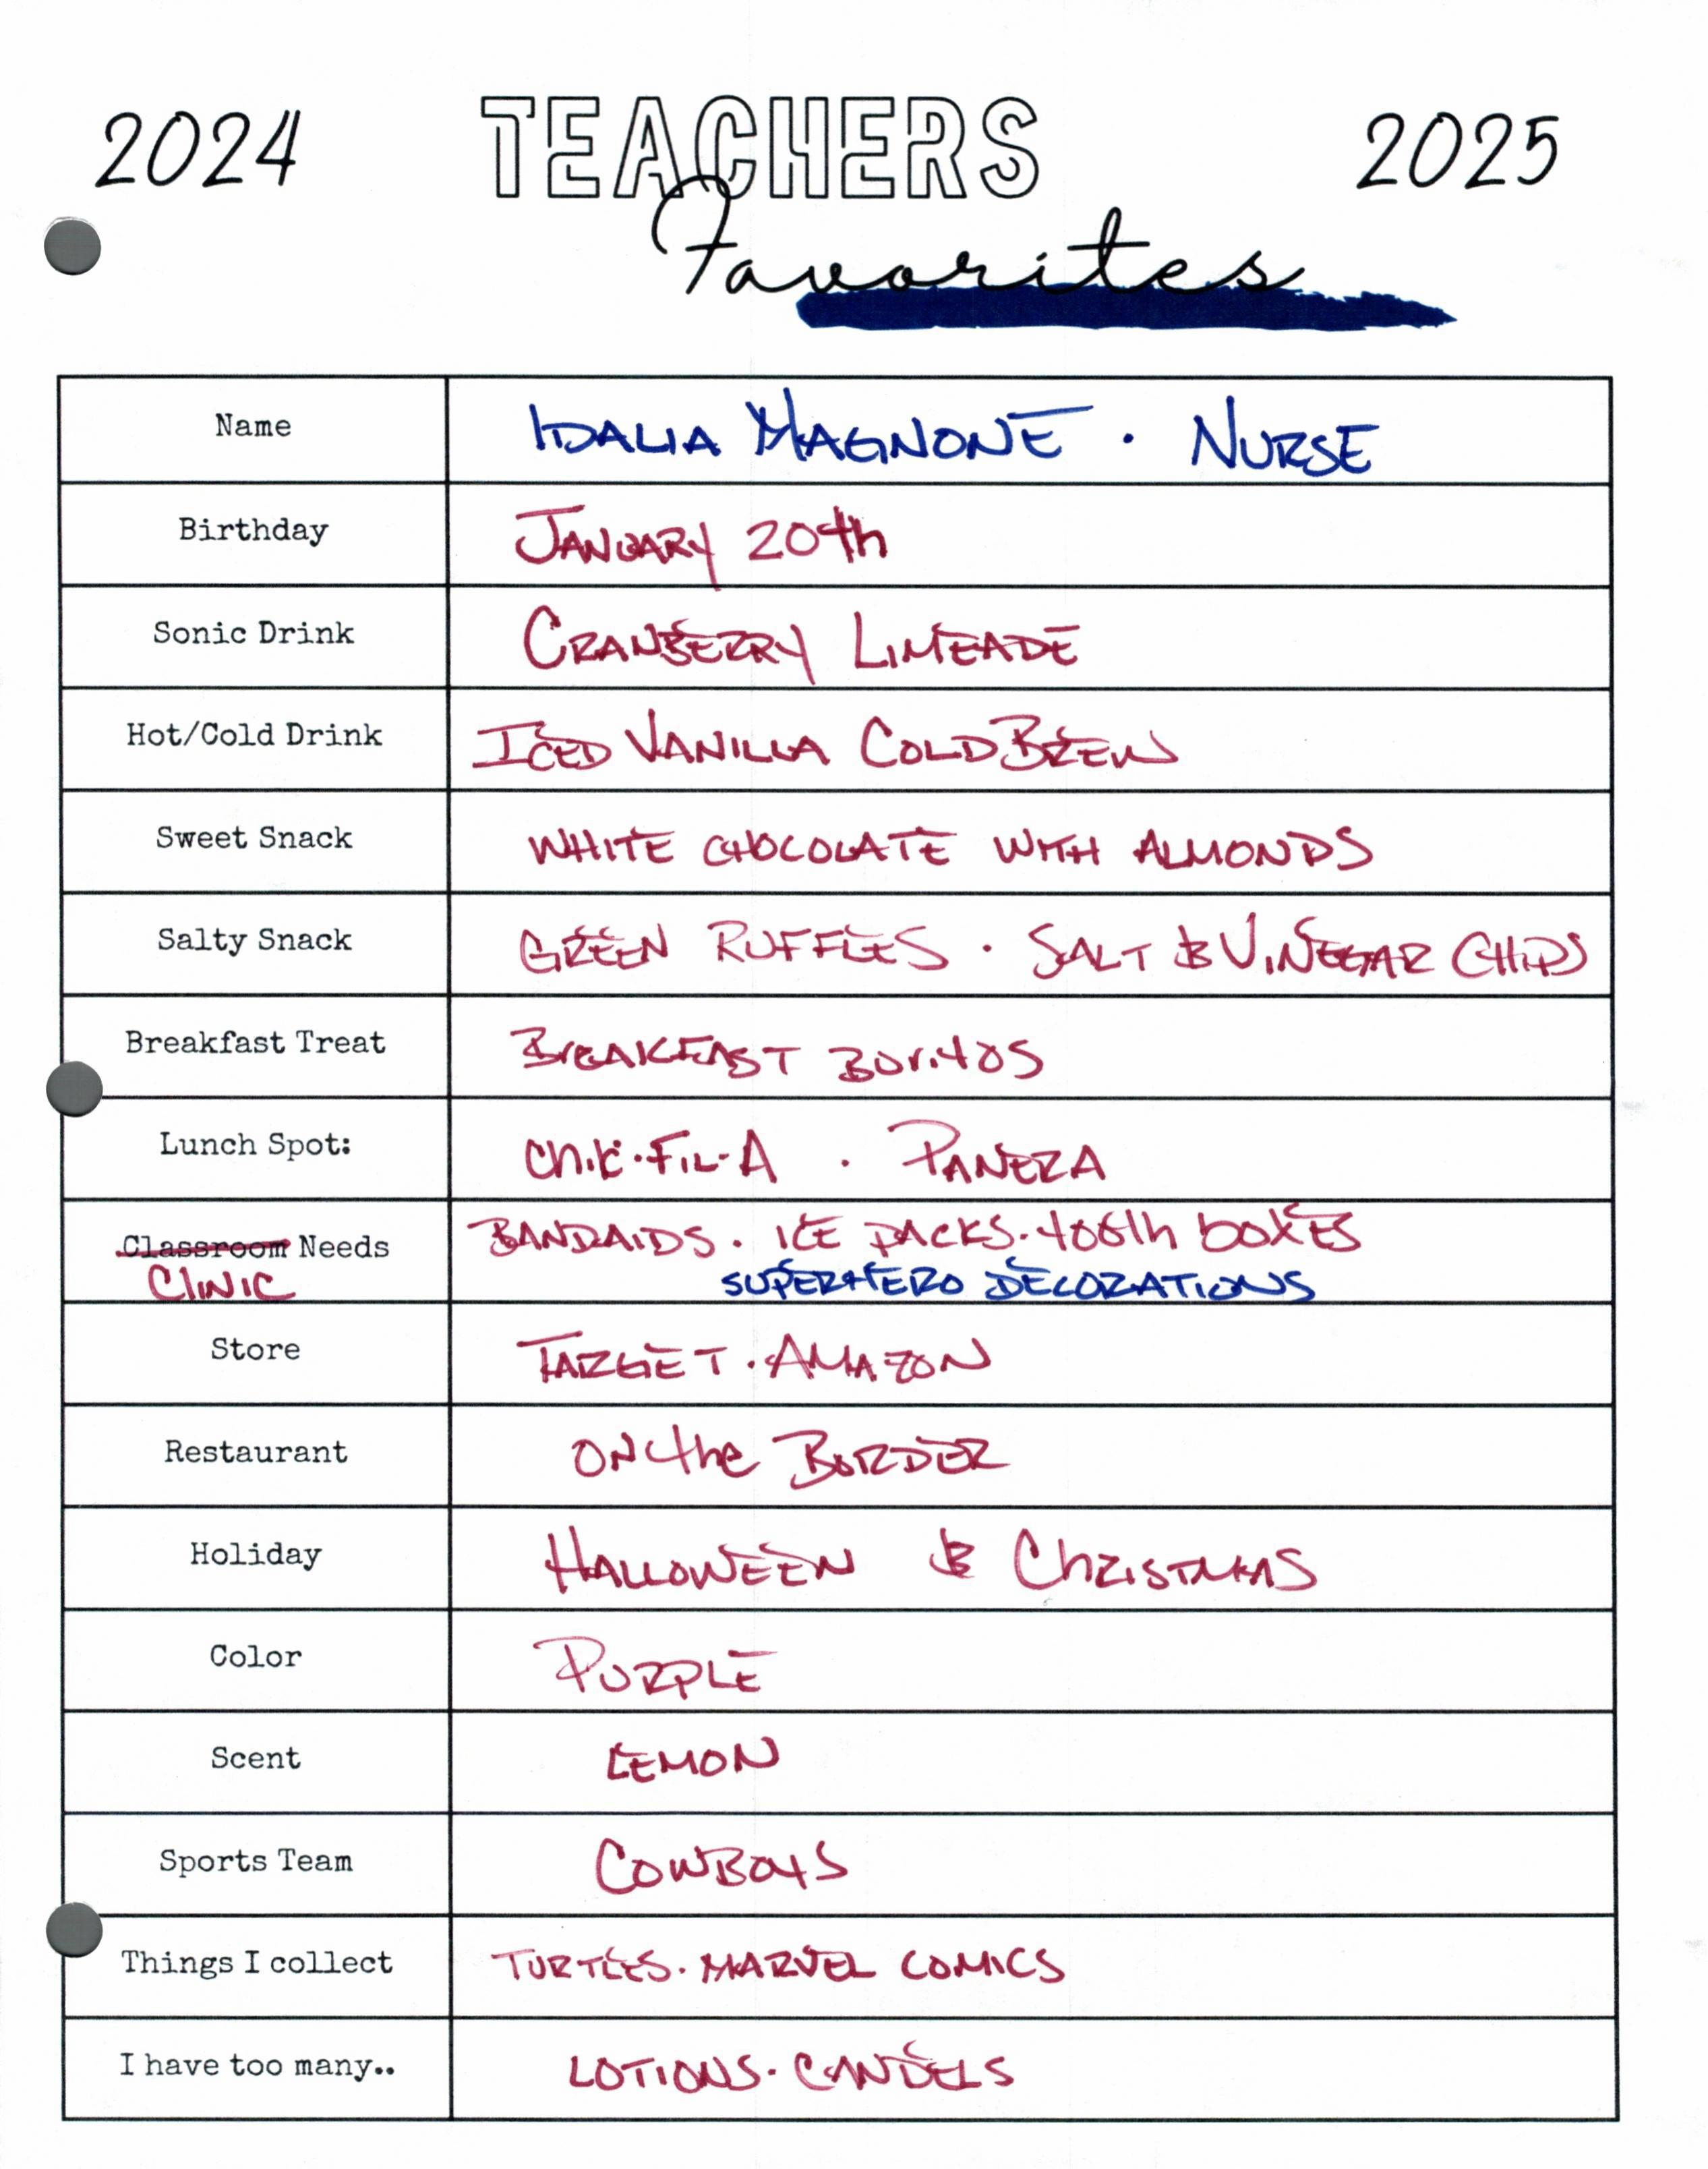 2024 TEACHERS 2025
Favorites
Name IDALIA MAGNONE · NURSE
Birthday JANUARY 20th
Sonic Drink CRANBERRY LIMEADE
Hot/Cold Drink ICED VANILLA COLD BREW
Sweet Snack WHITE CHOCOLATE WITH ALMONDS
Salty Snack GREEN RUFFLES · SALT & VINEGAR CHIPS
Breakfast Treat BREAKFAST BURITOS
Lunch Spot: Chik·FIL-A · PANERA
Classroom Needs BANDAIDS · ICE PACKS · tooth boxES
CLINIC SUPERHERO DECORATIONS
Store TARGET · AMAZON
Restaurant ON the BORDER
Holiday HALLOWEEN & ChRISTMAS
Color PURPLE
Scent LEMON
Sports Team COWBOYS
Things I collect TURTLES · MARVEL COMICS
I have too many.. LOTIONS · CANDELS